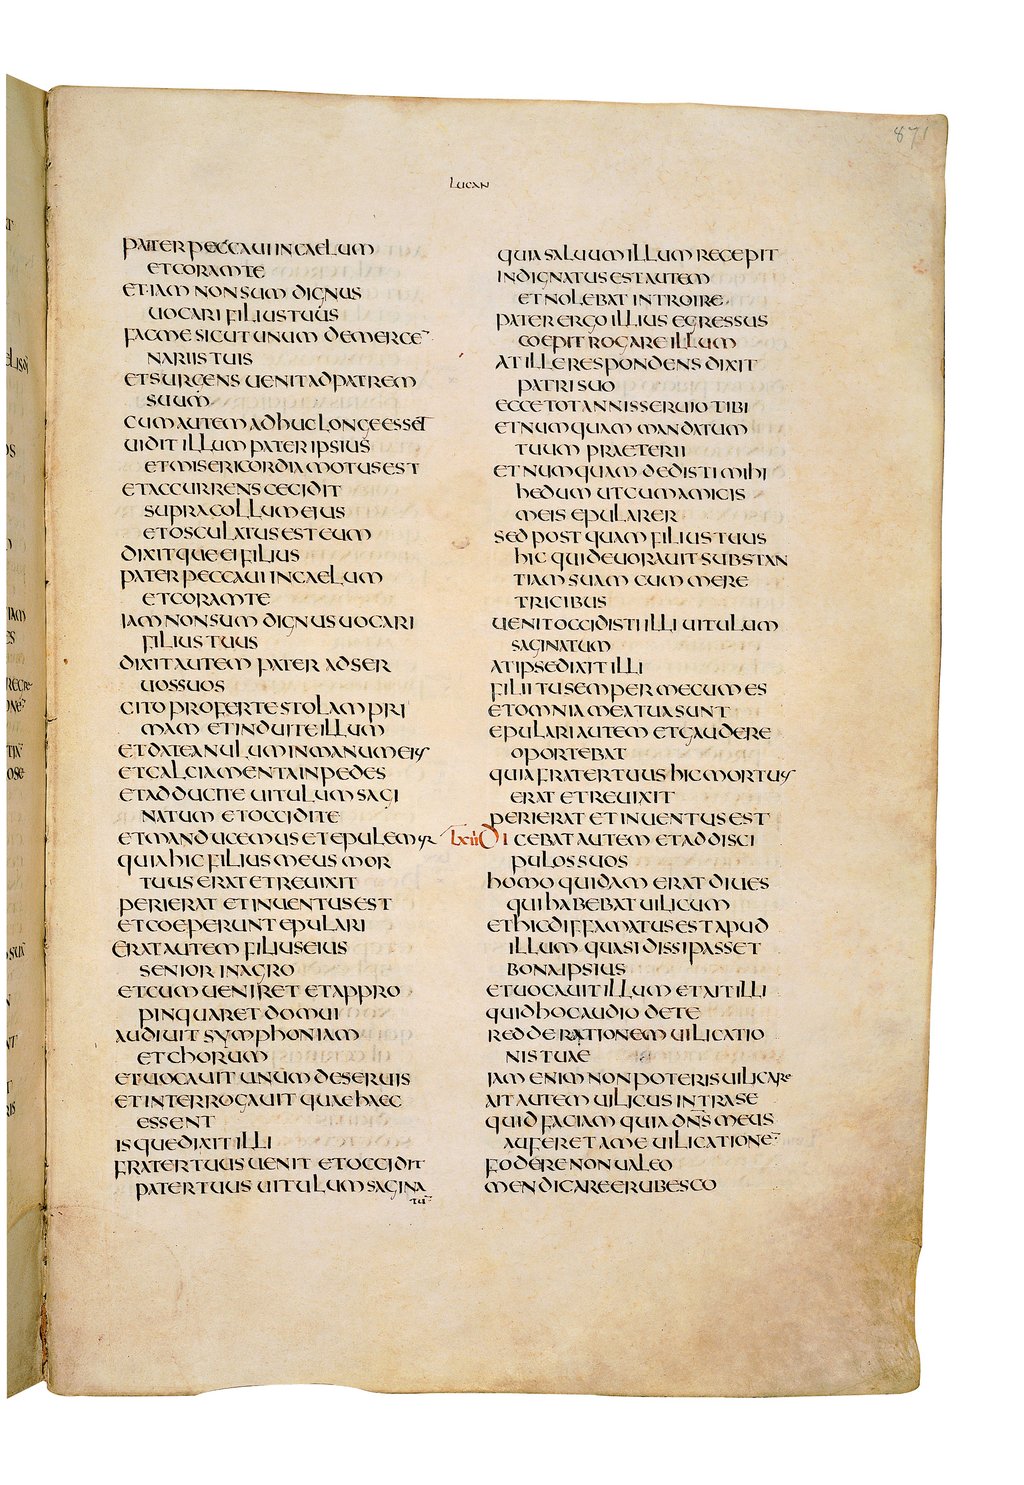 871
LUCAN
PATER PECCAUI IN CAELUM
ET CORAM TE
ET IAM NON SUM DIGNUS
UOCARI FILIUS TUUS
FAC ME SICUT UNUM DE MERCE
NARIIS TUIS
ET SURGENS UENIT AD PATREM
SUUM
CUM AUTEM ADHUC LONGE ESSET
UIDIT ILLUM PATER IPSIUS
ET MISERICORDIA MOTUS EST
ET ACCURRENS CECIDIT
SUPRA COLLUM EIUS
ET OSCULATUS EST EUM
DIXITQUE EI FILIUS
PATER PECCAUI IN CAELUM
ET CORAM TE
IAM NON SUM DIGNUS UOCARI
FILIUS TUUS
DIXIT AUTEM PATER AD SER
UOS SUOS
CITO PROFERTE STOLAM PRI
MAM ET INDUITE ILLUM
ET DATE ANULUM IN MANUM EIUS
ET CALCIAMENTA IN PEDES
ET ADDUCITE UITULUM SAGI
NATUM ET OCCIDITE
ET MANDUCEMUS ET EPULEMUR
QUIA HIC FILIUS MEUS MOR
TUUS ERAT ET REUIXIT
PERIERAT ET INUENTUS EST
ET COEPERUNT EPULARI
ERAT AUTEM FILIUS EIUS
SENIOR IN AGRO
ET CUM UENIRET ET APPRO
PINQUARET DOMUI
AUDIUIT SYMPHONIAM
ET CHORUM
ET UOCAUIT UNUM DE SERUIS
ET INTERROGAUIT QUAE HAEC
ESSENT
ISQUE DIXIT ILLI
FRATER TUUS UENIT ET OCCIDIT
PATER TUUS UITULUM SAGINA
TŪ
QUIA SALUUM ILLUM RECEPIT
INDIGNATUS EST AUTEM
ET NOLEBAT INTROIRE
PATER ERGO ILLIUS EGRESSUS
COEPIT ROGARE ILLUM
AT ILLE RESPONDENS DIXIT
PATRI SUO
ECCE TOT ANNIS SERUIO TIBI
ET NUMQUAM MANDATUM
TUUM PRAETERII
ET NUMQUAM DEDISTI MIHI
HEDUM UT CUM AMICIS
MEIS EPULARER
SED POSTQUAM FILIUS TUUS
HIC QUI DEUORAUIT SUBSTAN
TIAM SUAM CUM MERE
TRICIBUS
UENIT OCCIDISTI ILLI UITULUM
SAGINATUM
AT IPSE DIXIT ILLI
FILII TU SEMPER MECUM ES
ET OMNIA MEA TUA SUNT
EPULARI AUTEM ET GAUDERE
OPORTEBAT
QUIA FRATER TUUS HIC MORTUUS
ERAT ET REUIXIT
PERIERAT ET INUENTUS EST
LXIII DICEBAT AUTEM ET AD DISCI
PULOS SUOS
HOMO QUIDAM ERAT DIUES
QUI HABEBAT UILICUM
ET HIC DIFFAMATUS EST APUD
ILLUM QUASI DISSIPASSET
BONA IPSIUS
ET UOCAUIT ILLUM ET AIT ILLI
QUID HOC AUDIO DE TE
REDDE RATIONEM UILICATIO
NIS TUAE
IAM ENIM NON POTERIS UILICARE
AIT AUTEM UILICUS INTRA SE
QUID FACIAM QUIA DN̄S MEUS
AUFERET A ME UILICATIONE̅
FODERE NON UALEO
MENDICARE ERUBESCO